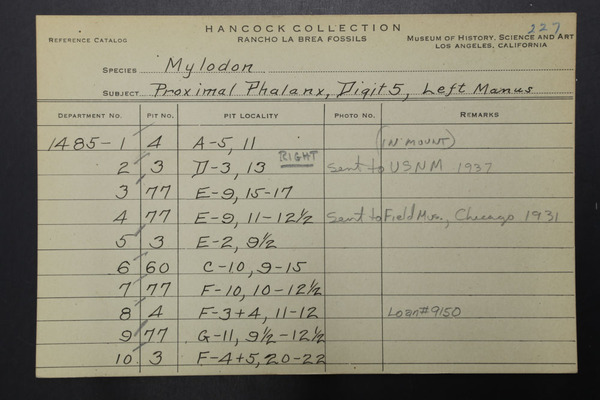 HANCOCK COLLECTION 227
REFERENCE CATALOG RANCHO LA BREA FOSSILS MUSEUM OF HISTORY, SCIENCE AND ART
LOS ANGELES, CALIFORNIA
SPECIES Mylodon
SUBJECT Proximal Phalanx, Digit 5, Left Manus
DEPARTMENT NO. PIT NO. PIT LOCALITY PHOTO NO. REMARKS
1485-1 4 A-5, 11 (IN MOUNT)
2 3 D-3, 13 RIGHT sent to USNM 1937
3 77 E-9, 15-17
4 77 E-9, 11-12½ Sent to Field Mus., Chicago 1931
5 3 E-2, 9½
6 60 C-10, 9-15
7 77 F-10, 10-12½
8 4 F-3+4, 11-12 Loan#9150
9 77 G-11, 9½-12½
10 3 F-4+5, 20-22